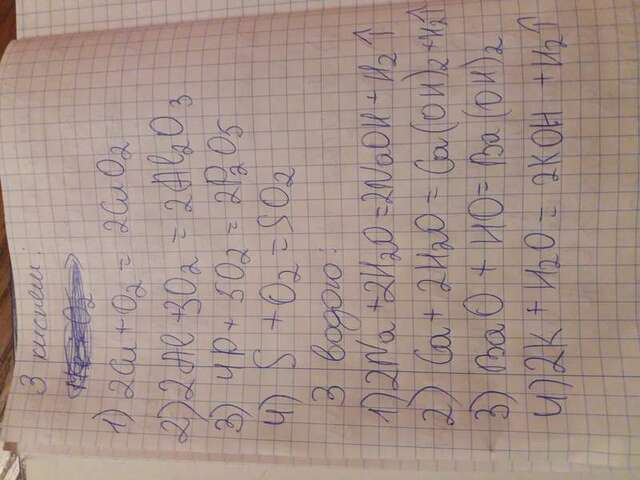 З киснем:
1) 2Cu + O2 = 2CuO2
2) 2Al + 3O2 = 2Al2O3
3) 4P + 5O2 = 2P2O5
4) S + O2 = SO2
З водою:
1) 2Na + 2H2O = 2NaOH + H2↑
2) Ca + 2H2O = Ca(OH)2 + H2↑
3) BaO + HO = Ba(OH)2
4) 2K + H2O = 2KOH + H2↑